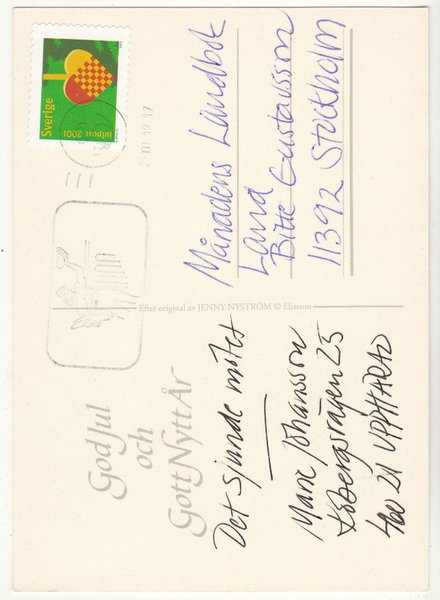 God Jul
och
Gott Nytt År
Det sjunde mötet
Marie Johansson
25
460 21 UPPHÄRAD
Efter original av JENNY NYSTRÖM © Eliasson
Sverige
Julpost 2001
Månadens Landbok
Land
Bitte Gustavsson
11392 Stockholm